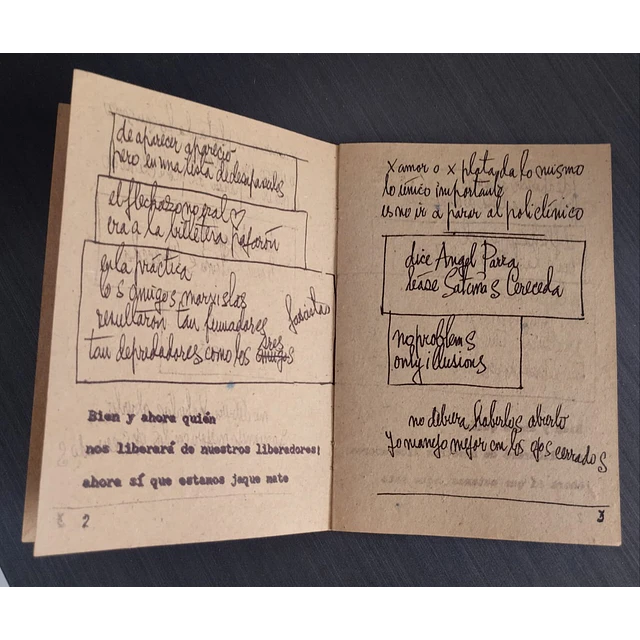 de aparecer apareció
pero en una lista de desaparecidos
el flechazo no era al ♡
era a la billetera pajarón
en la práctica
los amigos marxistas
resultaron tan fumadores
fascistas
tan depredadores como los sres
amigos
Bien y ahora quién
nos liberará de nuestros liberadores;
ahora sí que estamos jaque mate
2
x amor o x plata, da lo mismo
lo único importante
es no ir a parar al policlínico
dice Angel Parra
léase Satanás Cereceda
no problems
only illusions
no debiera haberlos abierto
yo manejo mejor con los ojos cerrados
3